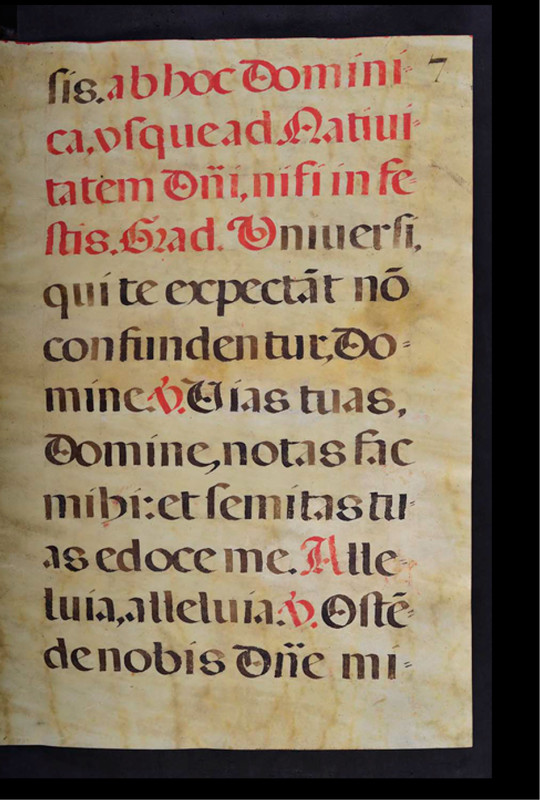 sis. ab hoc Domini- 7
ca, vsque ad Natiui-
tatem Dñi, nisi in fe-
stis. Grad. Vniuersi,
qui te expectāt nō
confundentur, Do-
mine. ℣. Uias tuas,
Domine, notas fac
mihi: et semitas tu-
as edoce me. Alle-
luia, alleluia. ℣. Ostē-
de nobis Dñe mi-